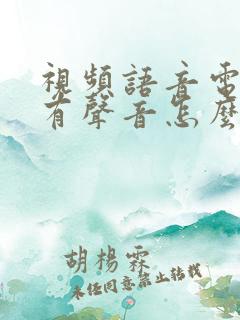 視頻語音電
有聲音怎麼
胡楊霖
未經同意禁止轉載